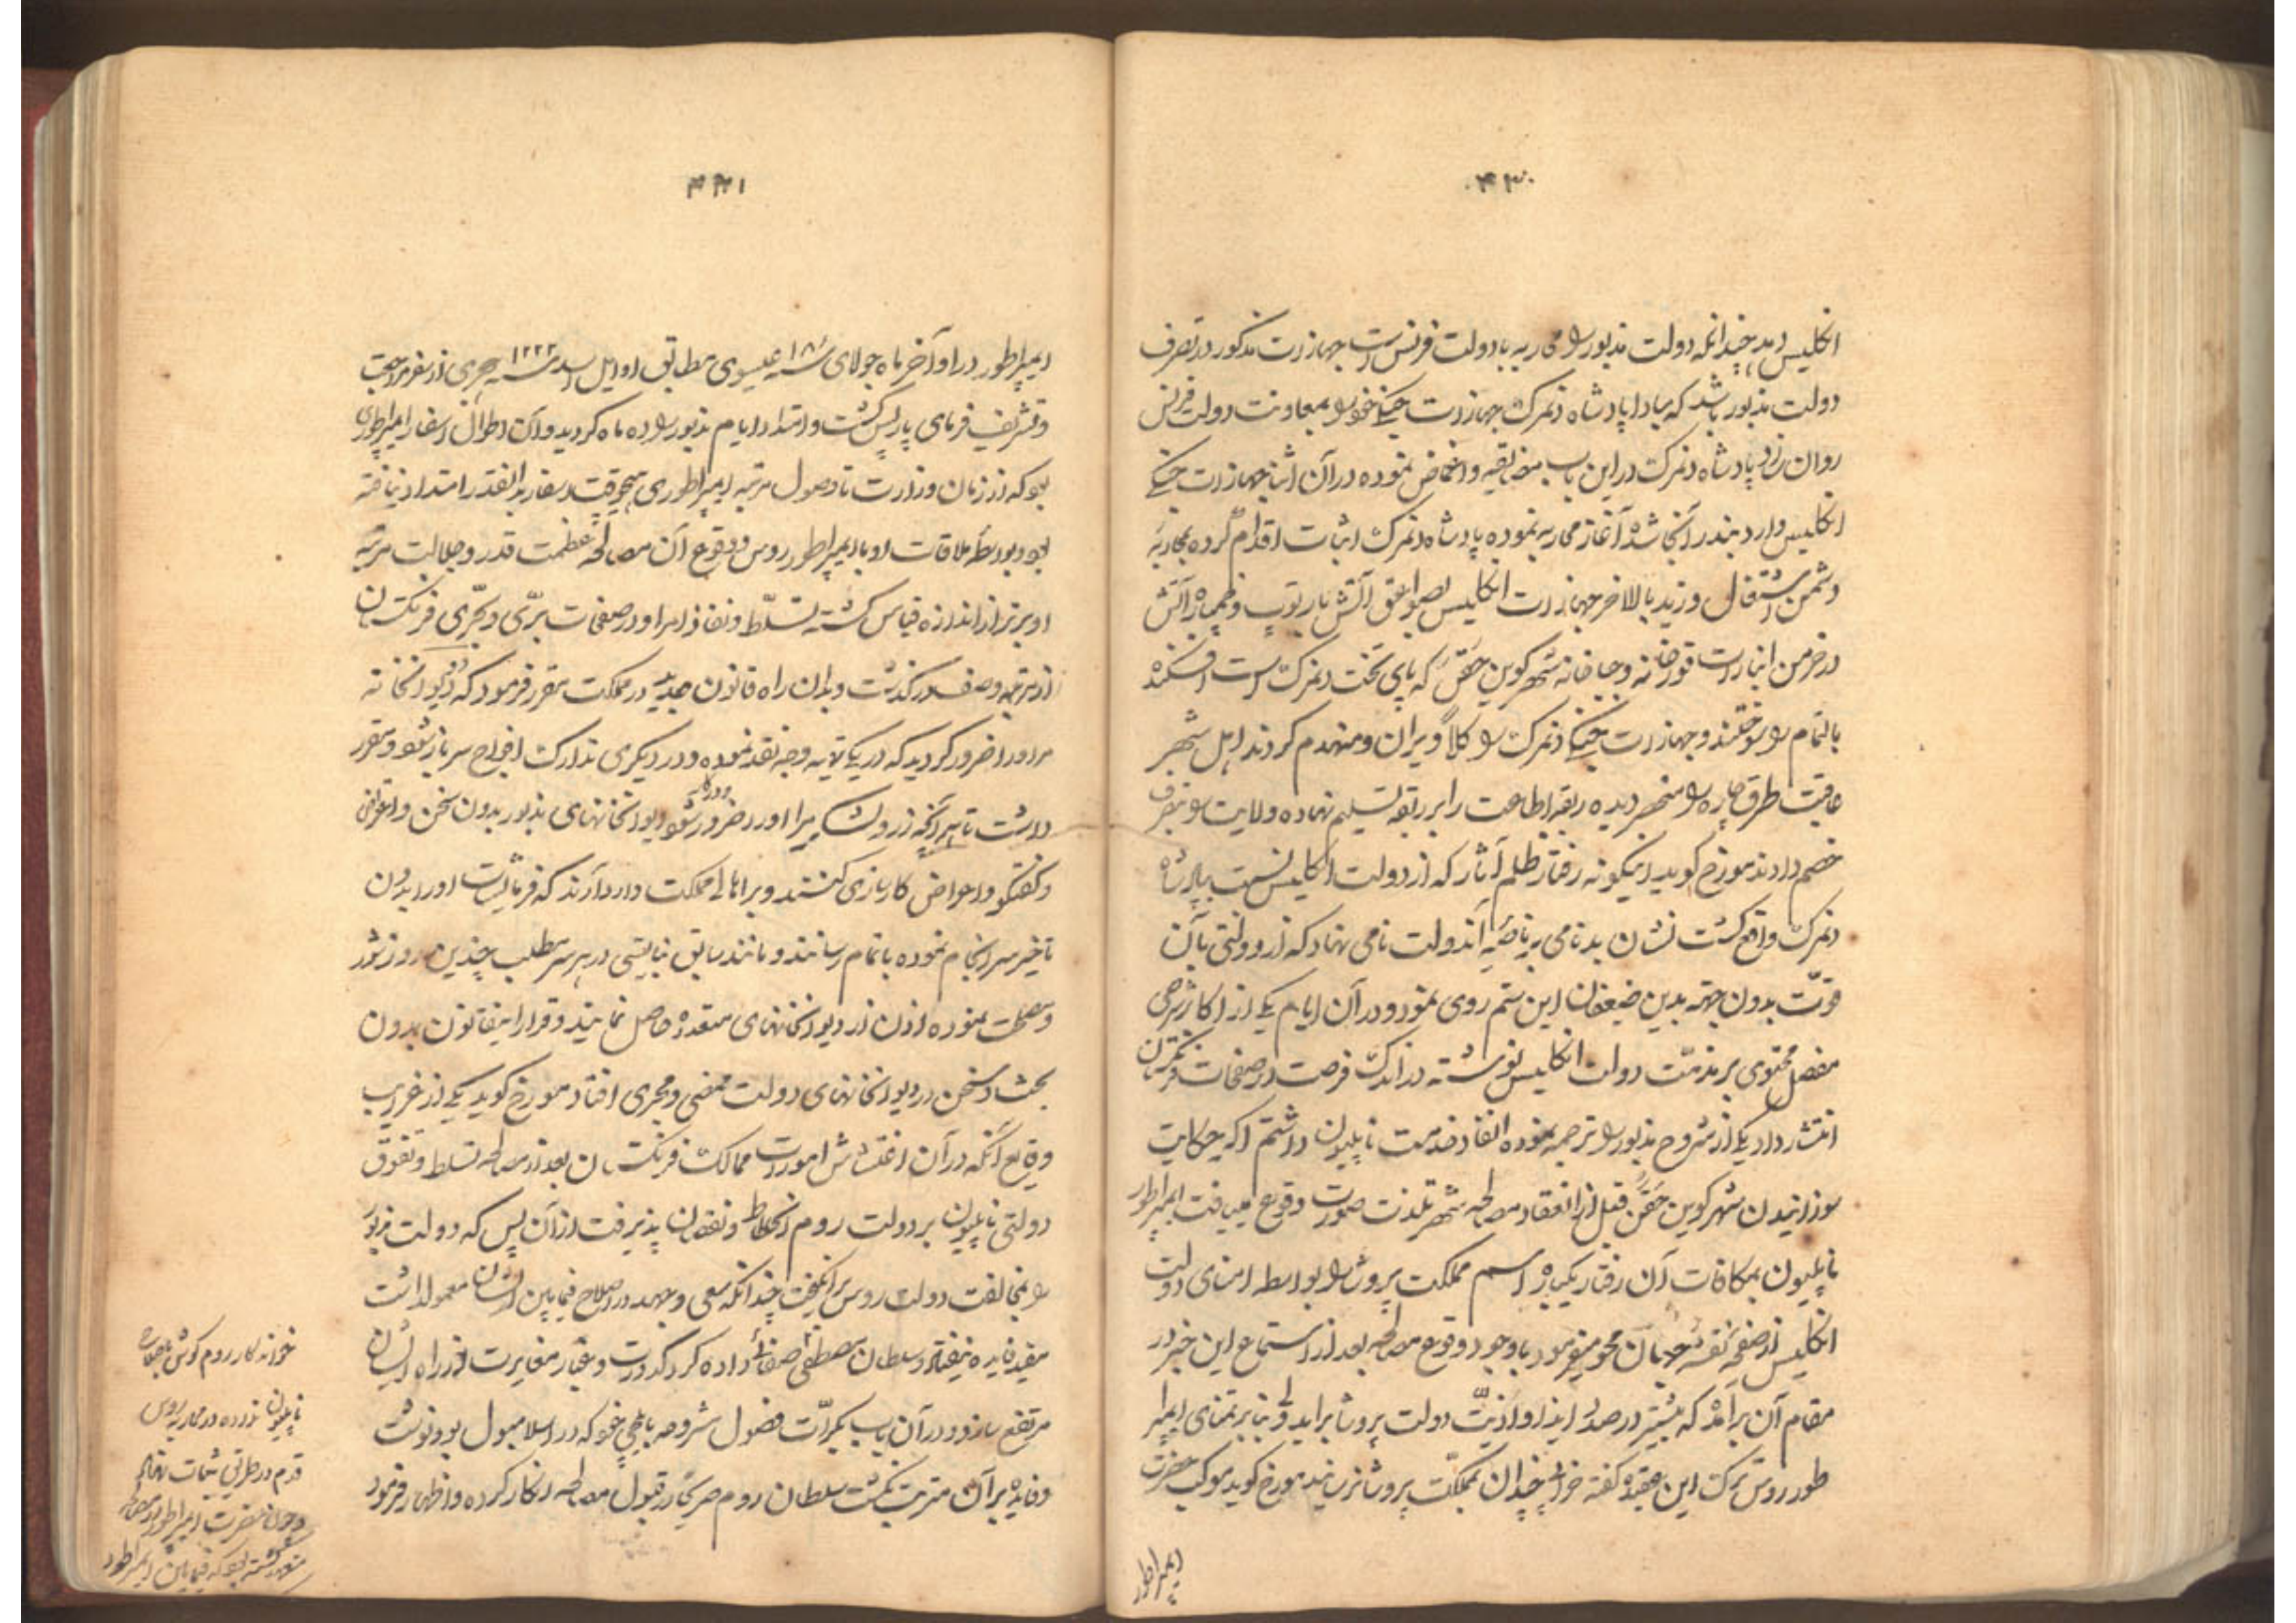 ۴۳۰
انکلیس دهد چندانکه دولت مذبور را محاربه با دولت فرنس است جهازات مذکور در تصرف
دولت مذبور باشد که مبادا پادشاه دنمرک جهازات جنکی خود را بمعاونت دولت فرنس
روان سازد پادشاه دنمرک در این باب مضایقه و اغماض نموده در آن اثنا جهازات جنکی
انکلیس وارد بندر آنجا شده آغاز محاربه نموده پادشاه دنمرک اثبات اقدام کرده بمحاربهٔ
دشمن اشتغال ورزید بالاخر جهازات انکلیس بصواعق آتش بار توپ و خمپاره آتش
در خرمن انبارات قورخانه و جباخانه شهر کوپن حقن که پای تخت دنمرک است افکنده
بالتمام را سوختند و جهازات جنکی دنمرک را کلاً ویران و منهدم کردند اهل شهر
عاقبت طرق چاره را منحصر دیده ربقه اطاعت را بر رقبه تسلیم نهاده ولایت را بتصرف
خصم دادند مورخ کوید اینکونه رفتار ظلم آثار که از دولت انکلیس نسبت بپادشاه
دنمرک واقع کشت نشان بدنامی بر ناصیهٔ آندولت نامی نهاد که از دولتی بآن
قوّت بدون جهة بدین ضعفان این ستم روی نمود و در آن ایام یکی از اکابر شرحی
مفصل محتوی بر مذمّت دولت انکلیس نوشته در اندک فرصت در صفحات فرنکستان
انتشار داد یکی از شروح مذبور را ترجمه نموده انفاذ خدمت ناپلیون داشتم اکر حکایت
سوزانیدن شهر کوپن حقن قبل از انعقاد مصالحه شهر تلذت صورت وقوع مییافت ایمپراطور
ناپلیون بمکافات آن رفتار یکباره اسم مملکت پروشا را بواسطه امنای دولت
انکلیس از صفحه نقشه جهان محو میفرمود باوجود وقوع مصالحه بعد از استماع این خبر در
مقام آن برآمد که بیشتر در صدد ایذا و اذیّت دولت پروشا براید ولی بنابر تمنای ایمپرا
طور روس ترک این عقیده کفته خرابی چندان بمملکت پروشا نرسانید مورخ کوید موکب حضرت
ایمپراطور
۴۳۱
ایمپراطور در اواخر ماه جولای سنه ۱۸۰ عیسوی مطابق اوایل اسد سنه ۱۲۲۲ هجری از سفر مراجعت
و تشریف فرمای پارلیس کشت و امتداد ایام مذبور را ده ماه کردید و آن اطوال اسفار ایمپراطوری
بود که از زمان وزارت تا وصول مرتبه ایمپراطوری هیچوقت سفار بدانقدر امتداد نیافته
بود بواسطهٔ ملاقات او با ایمپراطور روس و وقوع آن مصالحه عظمت قدر و جلالت مرتبه
او برتر از اندازه قیاس کشته تسلّط و نفاذ امر او در صفحات برّی و بحّری فرنکستان
از مرتبه وصف در کذشت و بدان راه قانون جدید در مملکت مقرر فرمود که دو دیوانخانه
مر او را ضرور کردید که در یکی تهیه وجه نقد نموده و در دیکری تدارک افواج سرباز شود و مقرر
داشت تا هر آنچه زر و لشکر مر او را در کار و ضرور شود دیوانخانهای مذبور بدون سخن و اعتراض
و کفتکو و اعراض کارسازی کنند و بر اهالی مملکت وارد آرند که فرمایشات او را بدون
تاخیر سرانجام نموده باتمام رسانند و مانند سابق نبایستی در هر سر مطلب چندین روز شور
و مصلحت نموده اذن از دیوانخانهای متعدده حاصل نمایند و قرار اینقانون بدون
بحث و سخن در دیوانخانهای دولت ممضی و مجری افتاد مورخ کوید یکی از غرایب
وقایع آنکه در آن اغتشاش امورات ممالک فرنکستان بعد از مصالحه تسلط و تفوق
دولتی ناپلیون بر دولت روم انحطاط و نقصان پذیرفت از آن پس که دولت مذبور
را بمخالفت دولت روس برانکیخت چندانکه سعی و جهد در اصلاح فیمابین ایشان معمول داشت
مفید فایده نیفتاد و سلطان مصطفی صفائی داده کرد کدورت و غبار مغایرت از راه ایشان
مرتفع سازد و در آن باب بکرّات فضول مشروحه بایلچی خود که در اسلامبول بود نوشت
و فایدهٔ بر آن مترتب نکشت سلطان روم صریحاً از قبول مصالحه انکار کرده و اظهار فرمود
خواندکار روم کوش
ناپلیون نزده در محاربه روس
قدم در طریق ثبات نهاد
و چون حضرت ایمپراطور در مصالحه
متعهد کشته بود که فیمابین ایمپراطور